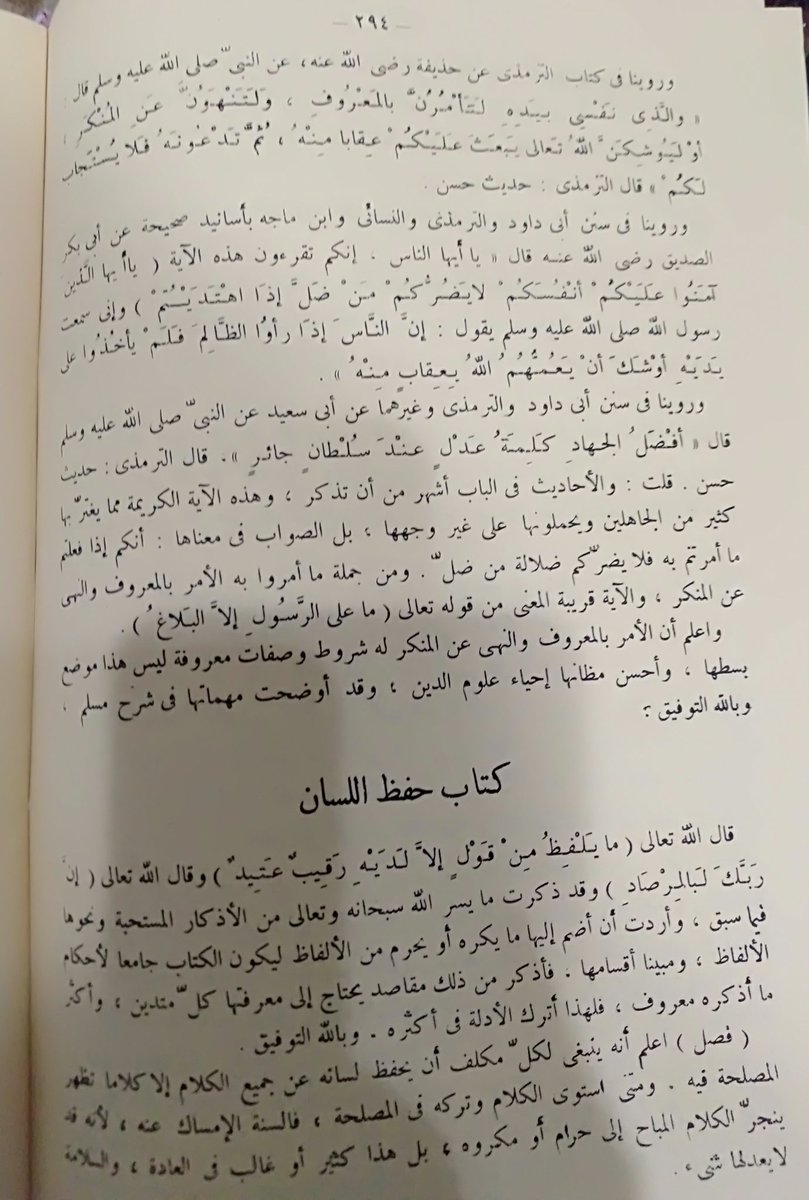 — ٢٩٤ —
وروينا فى كتاب الترمذى عن حذيفة رضى الله عنه، عن النبىّ صلى الله عليه وسلم قال :
« والَّذِى نَفْسِى بِيَدِهِ لَتَأْمُرُنَّ بالمَعْرُوفِ ، وَلَتَنْهَوُنَّ عَنِ المُنْكَرِ ،
أوْ لَيُوشِكَنَّ اللهُ تَعالى يَبعَثَ عَلَيْكُمْ عِقابا مِنْهُ ، ثُمَّ تَدْعُونَهُ فَلا يُسْتَجاب
لَكُمْ » قال الترمذى : حديث حسن .
وروينا فى سنن أبى داود والترمذى والنسائى وابن ماجه بأسانيد صحيحة عن أبى بكر
الصديق رضى الله عنه قال « يا أيها الناس . إنكم تقرءون هذه الآية ( ياأيها الَّذين
آمَنُوا عَلَيْكُمْ أنْفُسَكُمْ لايَضُرُّكُمْ مَنْ ضَلَّ إذَا اهْتَدَيْتُمْ ) وإنى سمعت
رسول الله صلى الله عليه وسلم يقول : إنَّ النَّاسَ إذَا رأوُا الظَّالِمَ فَلَمْ يأخُذُوا على
يَدَيْهِ أوْشَكَ أنْ يَعُمَّهُمُ اللهُ بِعِقابٍ مِنْهُ » .
وروينا فى سنن أبى داود والترمذى وغيرهما عن أبى سعيد عن النبىّ صلى الله عليه وسلم
قال « أفْضَلُ الجِهادِ كَلِمَةُ عَدْلٍ عِنْدَ سُلْطانٍ جائرٍ ». قال الترمذى : حديث
حسن . قلت : والأحاديث فى الباب أشهر من أن تذكر ، وهذه الآية الكريمة مما يغترّ بها
كثير من الجاهلين ويحملونها على غير وجهها ، بل الصواب فى معناها : أنكم إذا فعلتم
ما أمرتم به فلا يضرّكم ضلالة من ضلّ . ومن جملة ما أمروا به الأمر بالمعروف والنهى
عن المنكر ، والآية قريبة المعنى من قوله تعالى ( ما على الرَّسُولِ إلاَّ البَلاغُ ) .
واعلم أن الأمر بالمعروف والنهى عن المنكر له شروط وصفات معروفة ليس هذا موضع
بسطها ، وأحسن مظانها إحياء علوم الدين ، وقد أوضحت مهماتها فى شرح مسلم ،
وبالله التوفيق ؛
كتاب حفظ اللسان
قال الله تعالى ( ما يَلْفِظُ مِنْ قَوْلٍ إلاَّ لَدَيْهِ رَقِيبٌ عَتِيدٌ ) وقال الله تعالى ( إنَّ
رَبَّكَ لَبالمِرْصَادِ ) وقد ذكرت ما يسر الله سبحانه وتعالى من الأذكار المستحبة ونحوها
فيما سبق ، وأردت أن أضم إليها ما يكره أو يحرم من الألفاظ ليكون الكتاب جامعا لأحكام
الألفاظ ، ومبينا أقسامها . فأذكر من ذلك مقاصد يحتاج إلى معرفتها كلّ متدين ، وأكثر
ما أذكره معروف ، فلهذا أترك الأدلة فى أكثره . وبالله التوفيق .
( فصل ) اعلم أنه ينبغى لكلّ مكلف أن يحفظ لسانه عن جميع الكلام إلا كلاما تظهر
المصلحة فيه . ومتى استوى الكلام وتركه فى المصلحة ، فالسنة الإمساك عنه ، لأنه قد
ينجرّ الكلام المباح إلى حرام أو مكروه ، بل هذا كثير أو غالب فى العادة ، والسلامة
لايعدلها شىء .